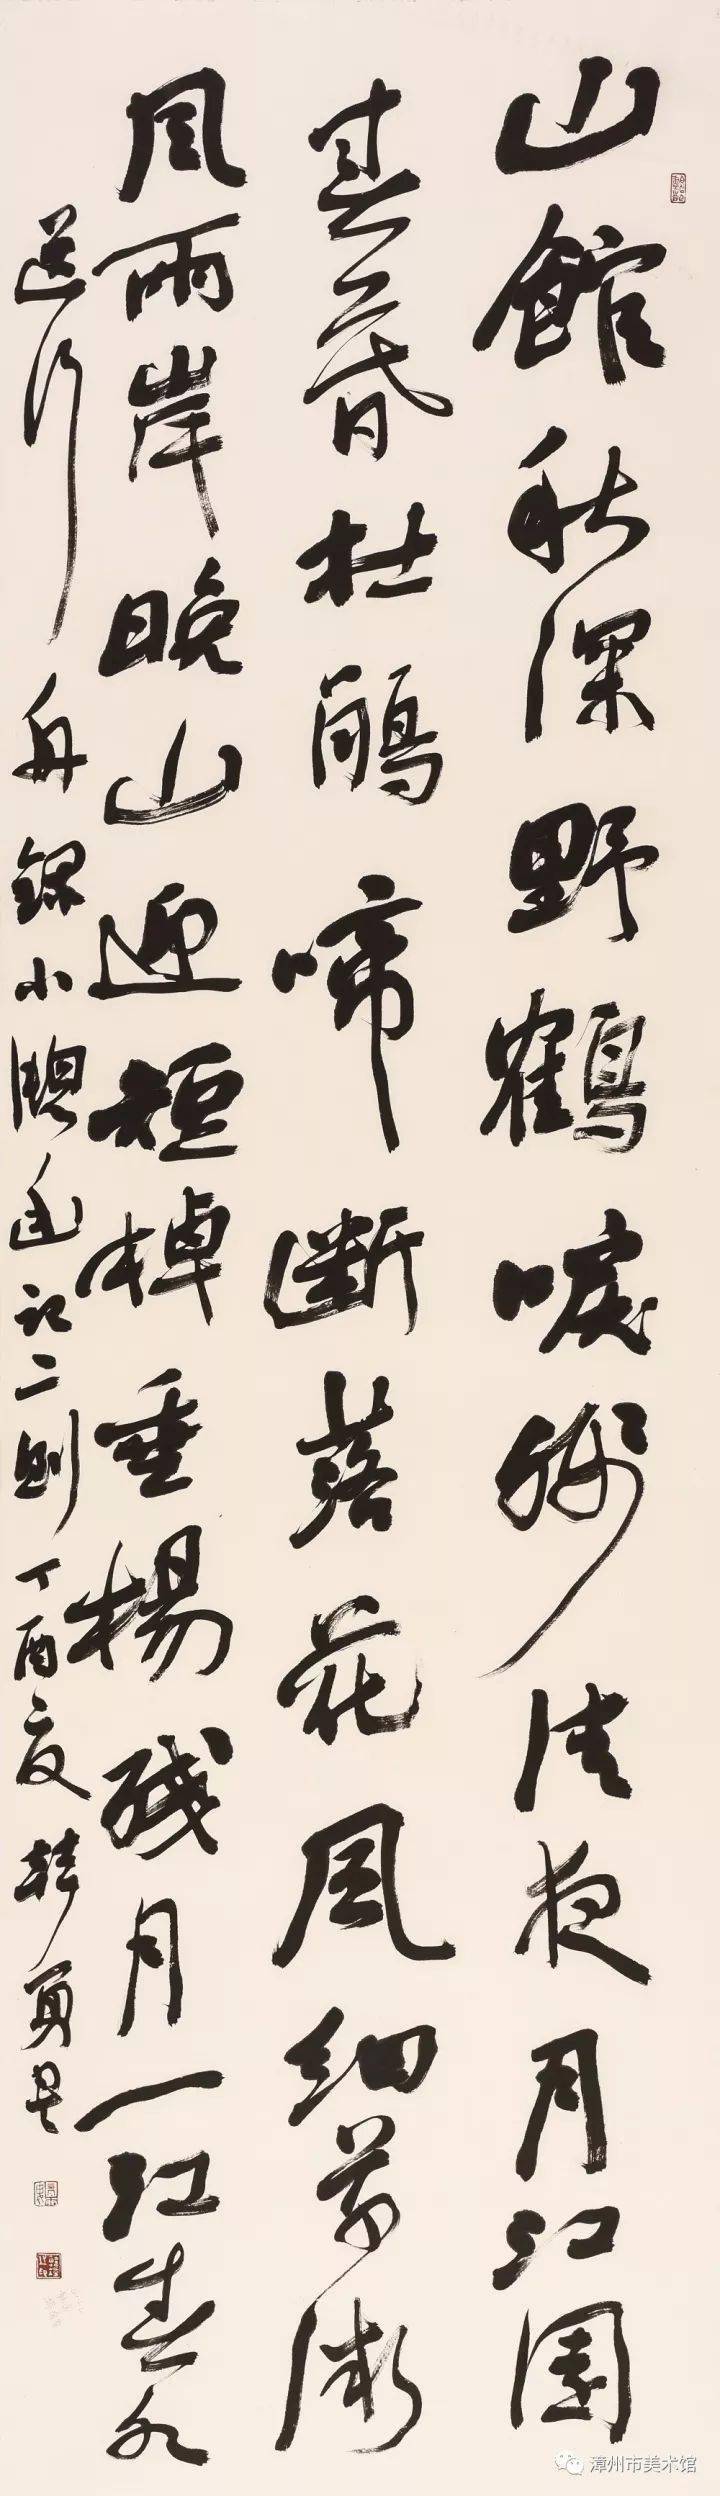 山館秋深野鶴唳殘清夜月江園
春暮杜鵑啼斷落花風細草微
風兩岸晚山迎短棹垂楊殘月一江春水
送行舟 錄小窗幽記二則 丁酉夏
漳州市美术馆